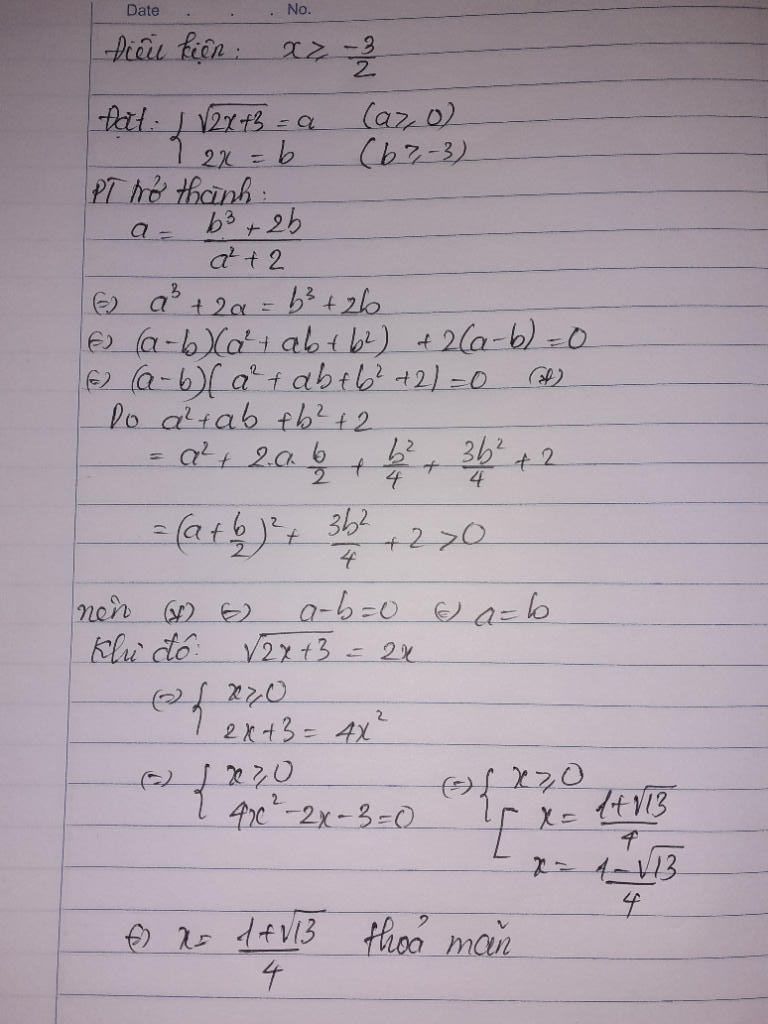 Date . . . No.
Điều kiện: x ≥ -3/2
Đặt: { √(2x+3) = a (a ≥ 0)
2x = b (b ≥ -3)
PT trở thành:
a = (b³ + 2b)/(a² + 2)
(=) a³ + 2a = b³ + 2b
(=) (a-b)(a² + ab + b²) + 2(a-b) = 0
(=) (a-b)(a² + ab + b² + 2) = 0 (*)
Do a² + ab + b² + 2
= a² + 2.a.b/2 + b²/4 + 3b²/4 + 2
= (a + b/2)² + 3b²/4 + 2 > 0
nên (*) (=) a-b=0 (=) a=b
Khi đó: √(2x+3) = 2x
(=) { x ≥ 0
2x+3 = 4x²
(=) { x ≥ 0 (=) { x ≥ 0
4x² - 2x - 3 = 0 [ x = (1+√13)/4
x = (1-√13)/4
(=) x = (1+√13)/4 thoả mãn